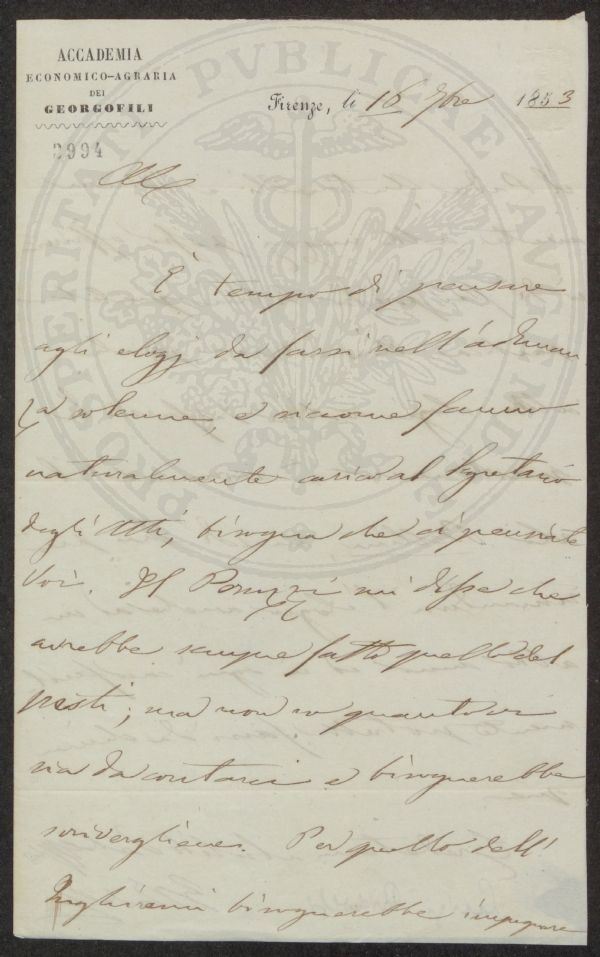 ACCADEMIA
ECONOMICO-AGRARIA
DEI
GEORGOFILI
2994
Firenze, li 16 9bre 1853
PROSPERITATI PUBLICAE AUGENDAE
È tempo di pensare
agli elogj da farsi nell'adunan
za solenne, e siccome fanno
naturalmente carico al Segretario
degli Atti, bisogna che ci pensiate
Voi. Il Peruzzi mi disse che
avrebbe sempre fatto quello del
; ma non so quanto vi
sia da contarci e bisognerebbe
scrivergliene. Per quello dell'
Inghirami bisognerebbe impegnare